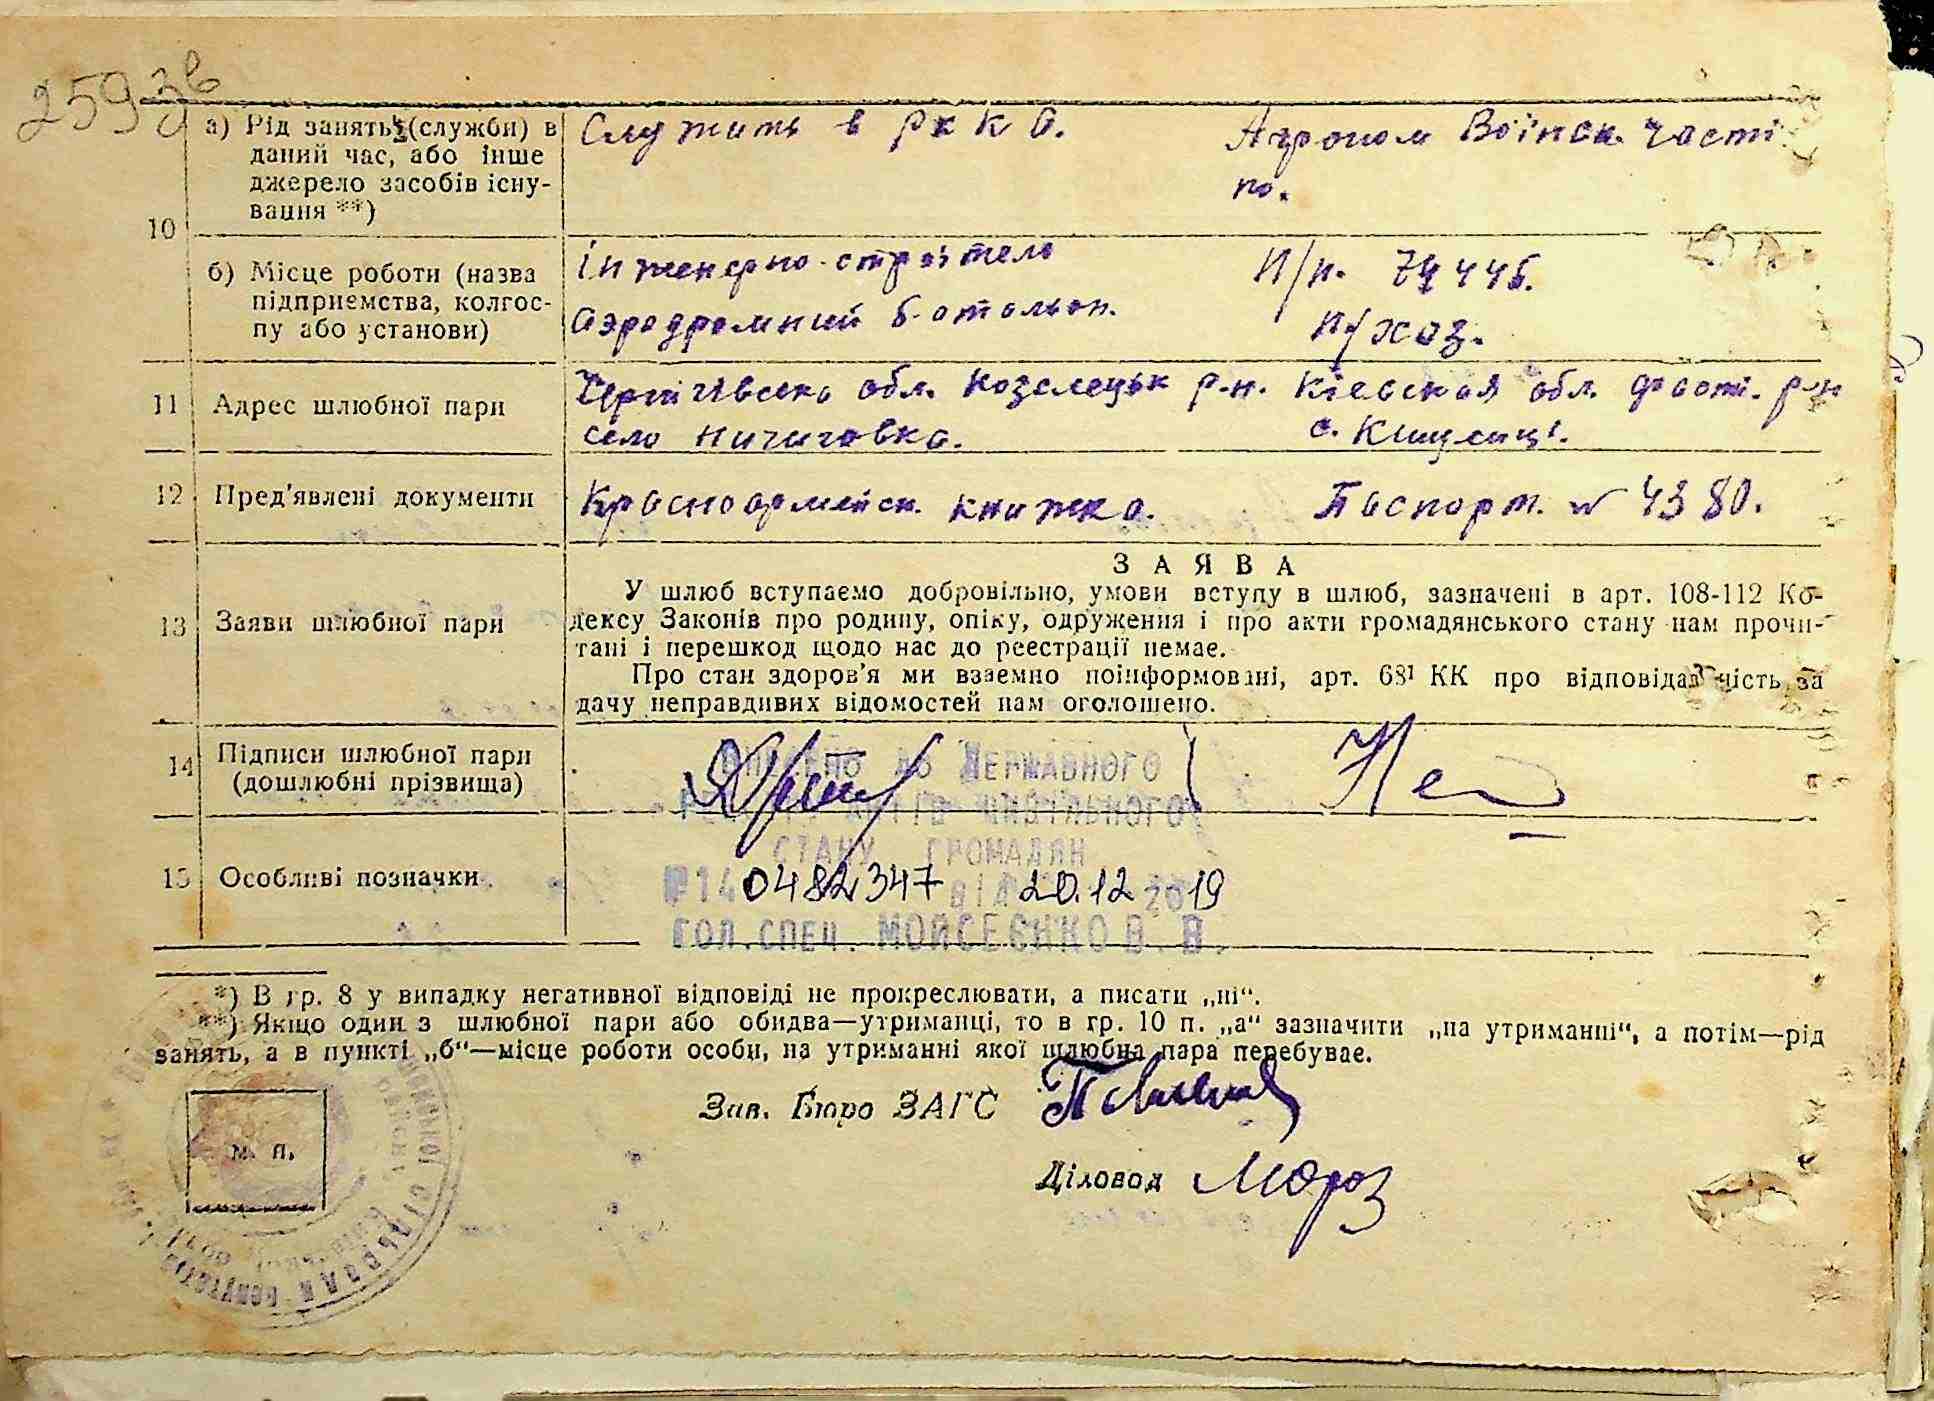 259 зв
10
а) Рід занять (служби) в даний час, або інше джерело засобів існування **)
Служить в РККА.
Агроном Воїнск. части
по.
б) Місце роботи (назва підприємства, колгоспу або установи)
Інженерно-строїтело
аэродромний батальон.
П/п. 74445.
п/хоз.
11 Адрес шлюбної пари
Чернігівсько обл. Козелецьк р-н.
село Ничиговка.
Кіевская обл. Фасті. р-н
с.
12 Пред'явлені документи
Красноармейск. книжка.
Паспорт. № 4380.
13 Заяви шлюбної пари
ЗАЯВА
У шлюб вступаємо добровільно, умови вступу в шлюб, зазначені в арт. 108-112 Ко-
дексу Законів про родину, опіку, одруження і про акти громадянського стану нам прочи-
тані і перешкод щодо нас до реестрації немає.
Про стан здоров'я ми взаємно поінформовані, арт. 68¹ КК про відповідальність за
дачу неправдивих відомостей нам оголошено.
14 Підписи шлюбної пари (дошлюбні прізвища)
ВНЕСЕНО ДО ДЕРЖАВНОГО
РЕЄСТРУ АКТІВ ЦИВІЛЬНОГО
СТАНУ ГРОМАДЯН
15 Особливі позначки
№140482347 ВІД 20.12 2019
ГОЛ.СПЕЦ. МОЙСЕЄНКО В. В.
*) В гр. 8 у випадку негативної відповіді не прокреслювати, а писати „ні“.
**) Якщо один з шлюбної пари або обидва—утриманці, то в гр. 10 п. „а“ зазначити „на утриманні“, а потім—рід
занять, а в пункті „б“—місце роботи особи, на утриманні якої шлюбна пара перебуває.
Зав. Бюро ЗАГС
м. п.
Діловод Мороз